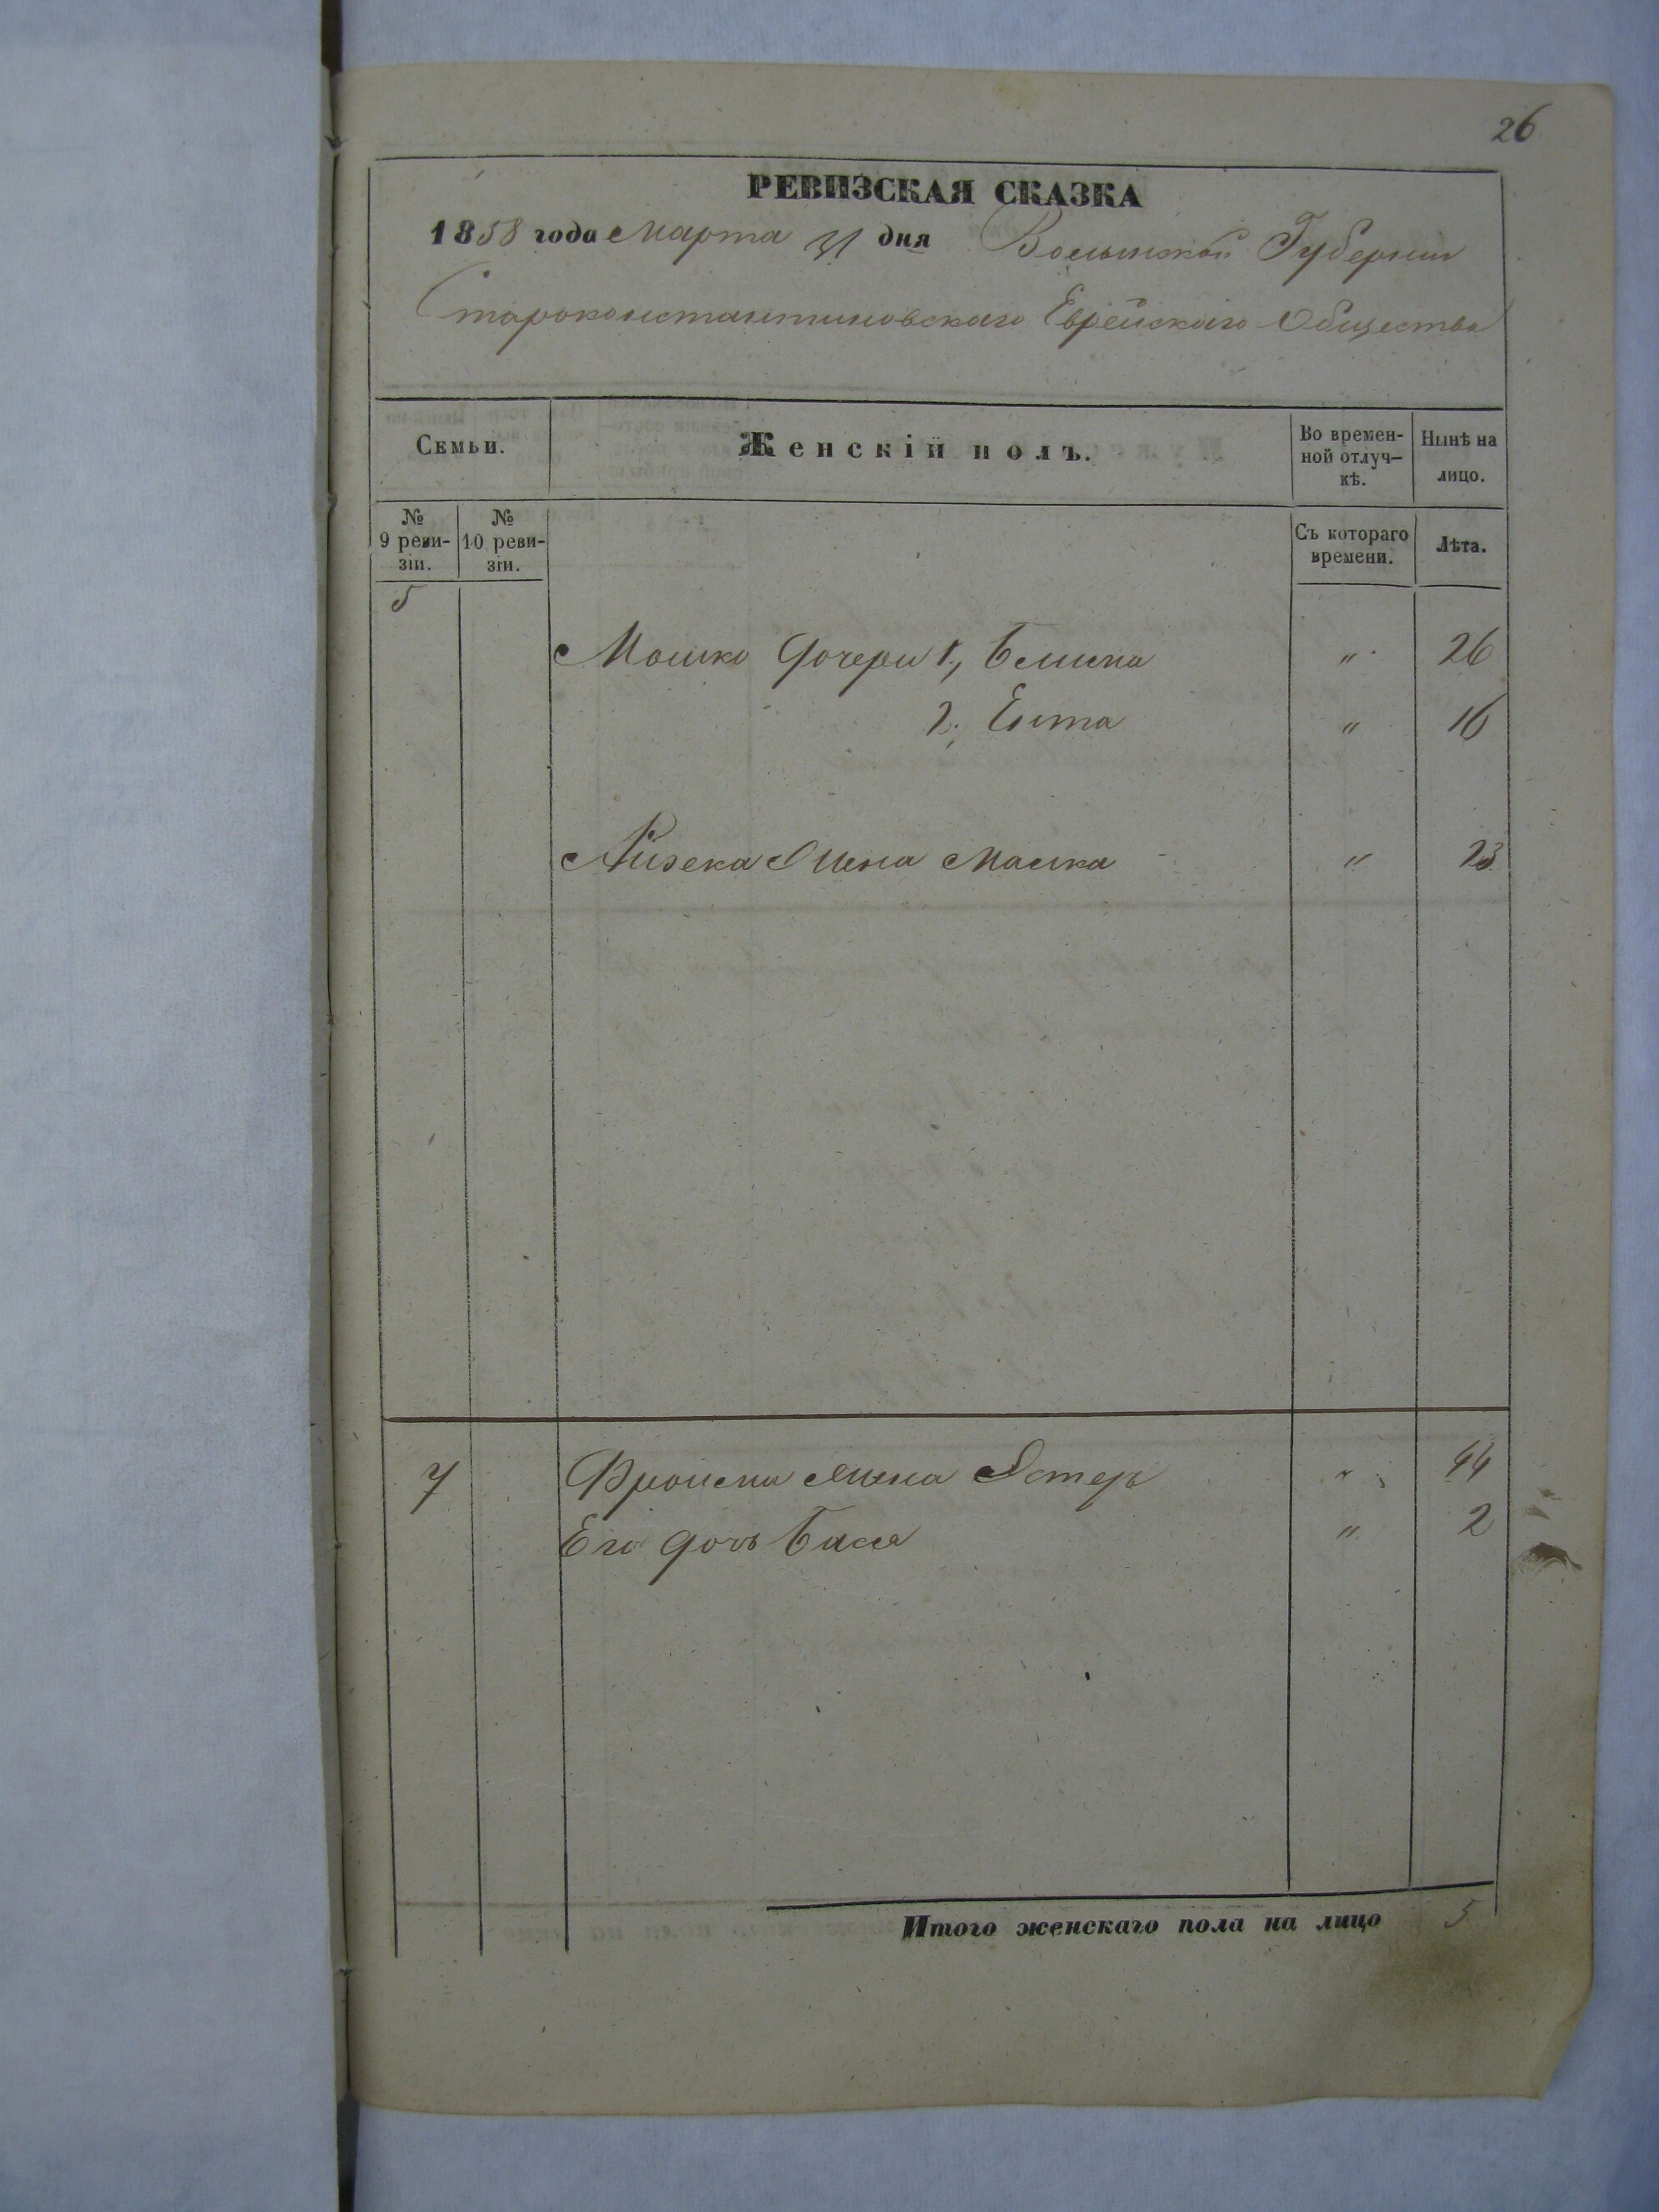 26
РЕВИЗСКАЯ СКАЗКА
1858 года Марта 31 дня Волынской Губернии
Староконстантиновскаго Еврейскаго Общества
Семьи.
Женскій полъ.
Во времен-
ной отлуч-
кѣ.
Нынѣ на
лицо.
№
9 реви-
зіи.
№
10 реви-
зіи.
Съ котораго
времени.
Лѣта.
5
Мошко дочери 1, " 26
2, Ента " 16
Жена " 23
7 Жена Эстер " 44
Его дочь Бася " 2
Итого женскаго пола на лицо 5